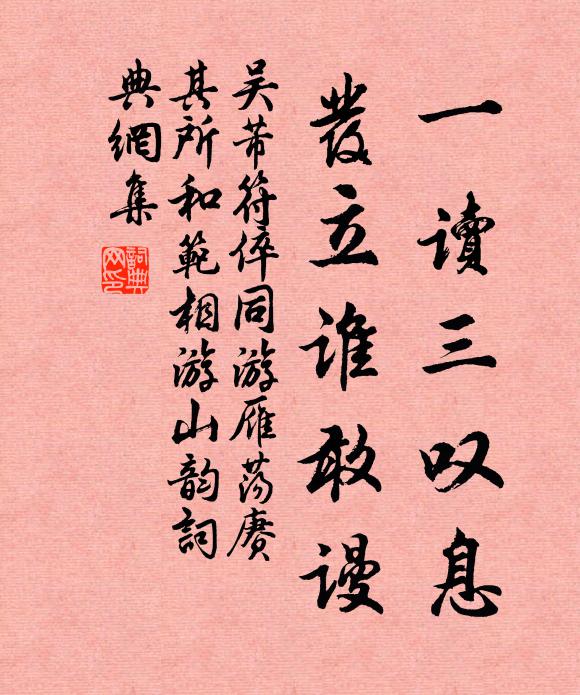 一讀三叹息
發立谁敢謾
吴芾符倅同游雁荡赓
其所和範相游山韵詞
典網集
詞典網印